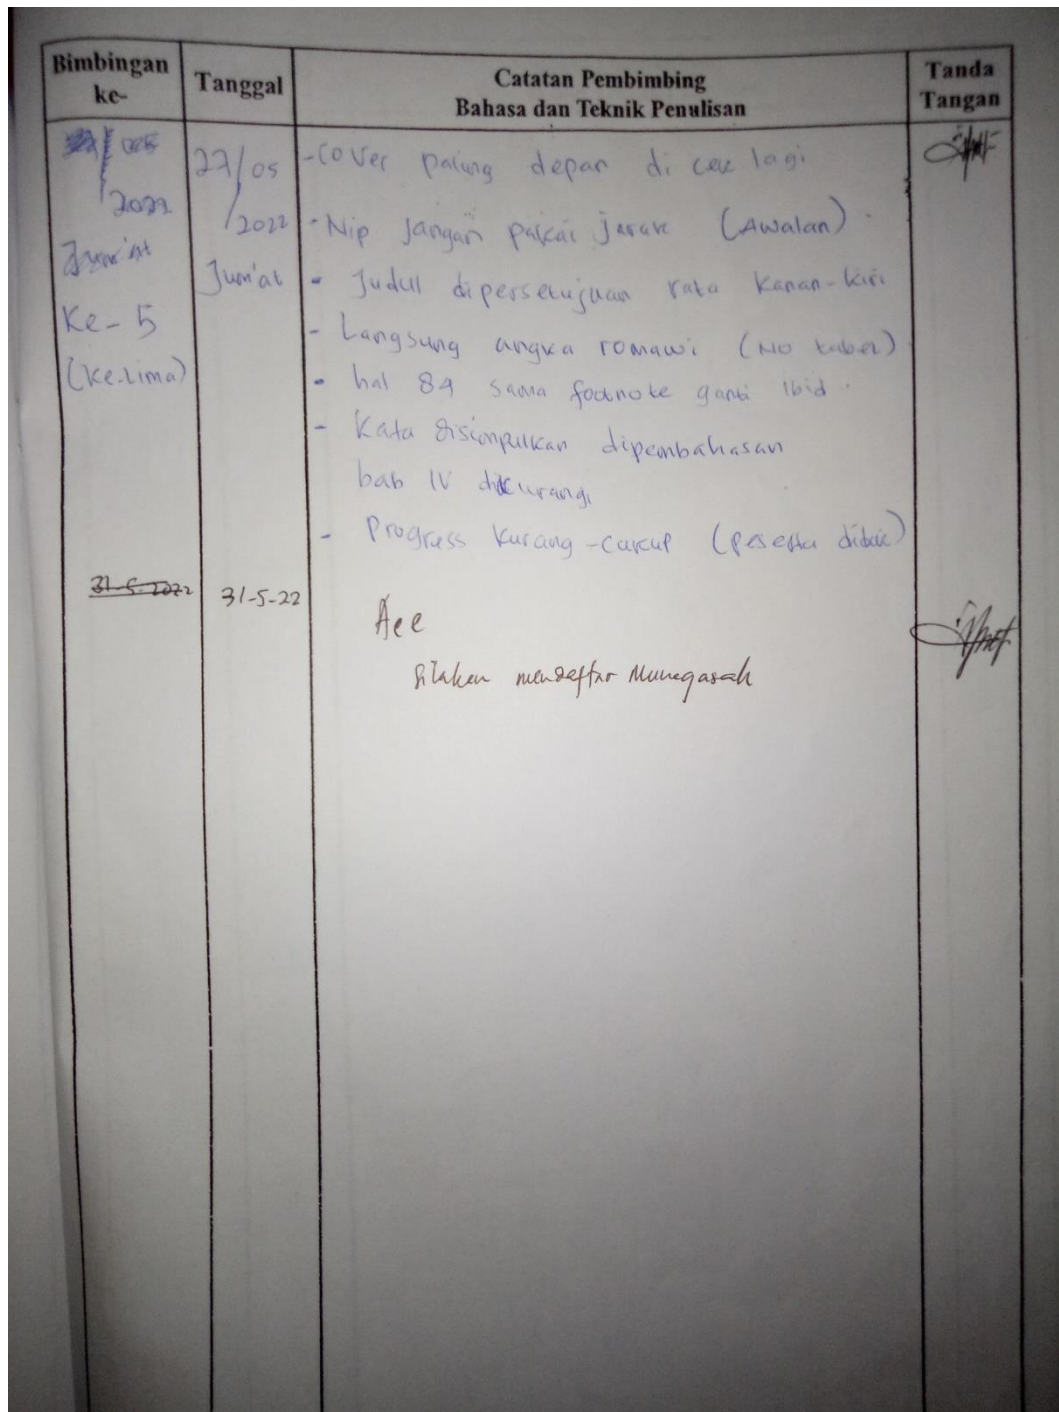 Bimbingan ke-
Tanggal
Catatan Pembimbing
Bahasa dan Teknik Penulisan
Tanda Tangan
2022
Jum'at
Ke-5
(Ke-Lima)
27/05
/2022
Jum'at
- Cover paling depan di cek lagi
- Nip jangan pakai jarak (Awalan).
- Judul dipersetujuan rata kanan-kiri
- Langsung angka romawi (No tabel)
- hal 89 sama footnote ganti Ibid.
- Kata disimpulkan dipembahasan
bab IV dikurangi
- Progress kurang-cukup (peserta didik)
31-5-2022
31-5-22
Acc
Silaken mendaftar Munaqasah